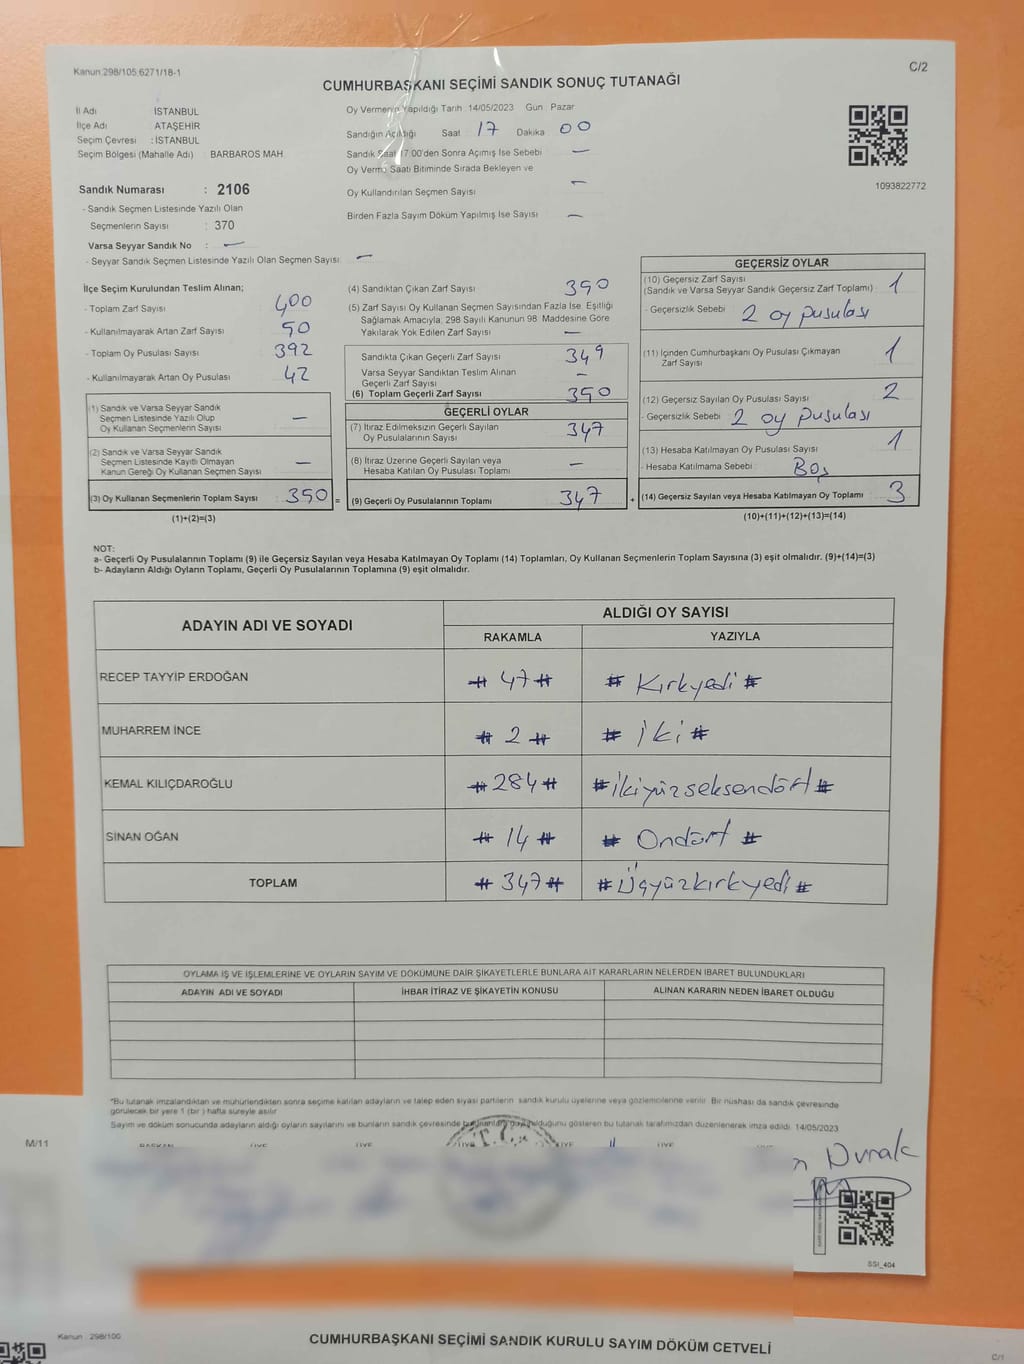 Kanun:298/105,6271/18-1
C/2
CUMHURBAŞKANI SEÇİMİ SANDIK SONUÇ TUTANAĞI
İl Adı İSTANBUL
İlçe Adı ATAŞEHİR
Seçim Çevresi : İSTANBUL
Seçim Bölgesi (Mahalle Adı) BARBAROS MAH.
Sandık Numarası : 2106
- Sandık Seçmen Listesinde Yazılı Olan
Seçmenlerin Sayısı : 370
Varsa Seyyar Sandık No : —
- Seyyar Sandık Seçmen Listesinde Yazılı Olan Seçmen Sayısı: —
Oy Vermenin Yapıldığı Tarih :14/05/2023 Gün : Pazar
Sandığın Açıldığı Saat 17 Dakika 00
Sandık Saat 17:00'den Sonra Açımış İse Sebebi —
Oy Verme Saati Bitiminde Sırada Bekleyen ve
Oy Kullandırılan Seçmen Sayısı —
Birden Fazla Sayım Döküm Yapılmış İse Sayısı —
1093822772
İlçe Seçim Kurulundan Teslim Alınan;
- Toplam Zarf Sayısı : 400
- Kullanılmayarak Artan Zarf Sayısı : 50
- Toplam Oy Pusulası Sayısı : 392
- Kullanılmayarak Artan Oy Pusulası : 42
(1) Sandık ve Varsa Seyyar Sandık
Seçmen Listesinde Yazılı Olup
Oy Kullanan Seçmenlerin Sayısı —
(2) Sandık ve Varsa Seyyar Sandık
Seçmen Listesinde Kayıtlı Olmayan
Kanun Gereği Oy Kullanan Seçmen Sayısı —
(3) Oy Kullanan Seçmenlerin Toplam Sayısı 350 =
(1)+(2)=(3)
(4) Sandıktan Çıkan Zarf Sayısı : 350
(5) Zarf Sayısı Oy Kullanan Seçmen Sayısından Fazla İse, Eşitliği
Sağlamak Amacıyla, 298 Sayılı Kanunun 98. Maddesine Göre
Yakılarak Yok Edilen Zarf Sayısı —
Sandıkta Çıkan Geçerli Zarf Sayısı : 349
Varsa Seyyar Sandıktan Teslim Alınan
Geçerli Zarf Sayısı —
(6) Toplam Geçerli Zarf Sayısı : 350
GEÇERLİ OYLAR
(7) İtiraz Edilmeksizin Geçerli Sayılan
Oy Pusulalarının Sayısı 347
(8) İtiraz Üzerine Geçerli Sayılan veya
Hesaba Katılan Oy Pusulası Toplamı —
(9) Geçerli Oy Pusulalarının Toplamı 347 +
GEÇERSİZ OYLAR
(10) Geçersiz Zarf Sayısı
(Sandık ve Varsa Seyyar Sandık Geçersiz Zarf Toplamı) : 1
- Geçersizlik Sebebi : 2 oy pusulası
(11) İçinden Cumhurbaşkanı Oy Pusulası Çıkmayan
Zarf Sayısı 1
(12) Geçersiz Sayılan Oy Pusulası Sayısı : 2
- Geçersizlik Sebebi : 2 oy pusulası
(13) Hesaba Katılmayan Oy Pusulası Sayısı : 1
- Hesaba Katılmama Sebebi : Boş
(14) Geçersiz Sayılan veya Hesaba Katılmayan Oy Toplamı 3
(10)+(11)+(12)+(13)=(14)
NOT:
a- Geçerli Oy Pusulalarının Toplamı (9) ile Geçersiz Sayılan veya Hesaba Katılmayan Oy Toplamı (14) Toplamları, Oy Kullanan Seçmenlerin Toplam Sayısına (3) eşit olmalıdır. (9)+(14)=(3)
b- Adayların Aldığı Oyların Toplamı, Geçerli Oy Pusulalarının Toplamına (9) eşit olmalıdır.
ADAYIN ADI VE SOYADI ALDIĞI OY SAYISI
RAKAMLA YAZIYLA
RECEP TAYYİP ERDOĞAN # 47 # # Kırkyedi #
MUHARREM İNCE # 2 # # İki #
KEMAL KILIÇDAROĞLU # 284 # # İkiyüzseksendört #
SİNAN OĞAN # 14 # # Ondört #
TOPLAM # 347 # # Üçyüzkırkyedi #
OYLAMA İŞ VE İŞLEMLERİNE VE OYLARIN SAYIM VE DÖKÜMÜNE DAİR ŞİKAYETLERLE BUNLARA AİT KARARLARIN NELERDEN İBARET BULUNDUKLARI
ADAYIN ADI VE SOYADI İHBAR İTİRAZ VE ŞİKAYETİN KONUSU ALINAN KARARIN NEDEN İBARET OLDUĞU
*Bu tutanak imzalandıktan ve mühürlendikten sonra seçime katılan adayların ve talep eden siyasi partilerin sandık kurulu üyelerine veya gözlemcilerine verilir. Bir nüshası da sandık çevresinde
görülecek bir yere 1 (bir ) hafta süreyle asılır.
Sayım ve döküm sonucunda adayların aldığı oyların sayılarını ve bunların sandık çevresinde olduğunu gösteren bu tutanak tarafımızdan düzenlenerek imza edildi. 14/05/2023
BAŞKAN ÜYE ÜYE ÜYE ÜYE ÜYE
T.C.
Durak
SSI_404
M/11
Kanun : 298/100
CUMHURBAŞKANI SEÇİMİ SANDIK KURULU SAYIM DÖKÜM CETVELİ
C/1